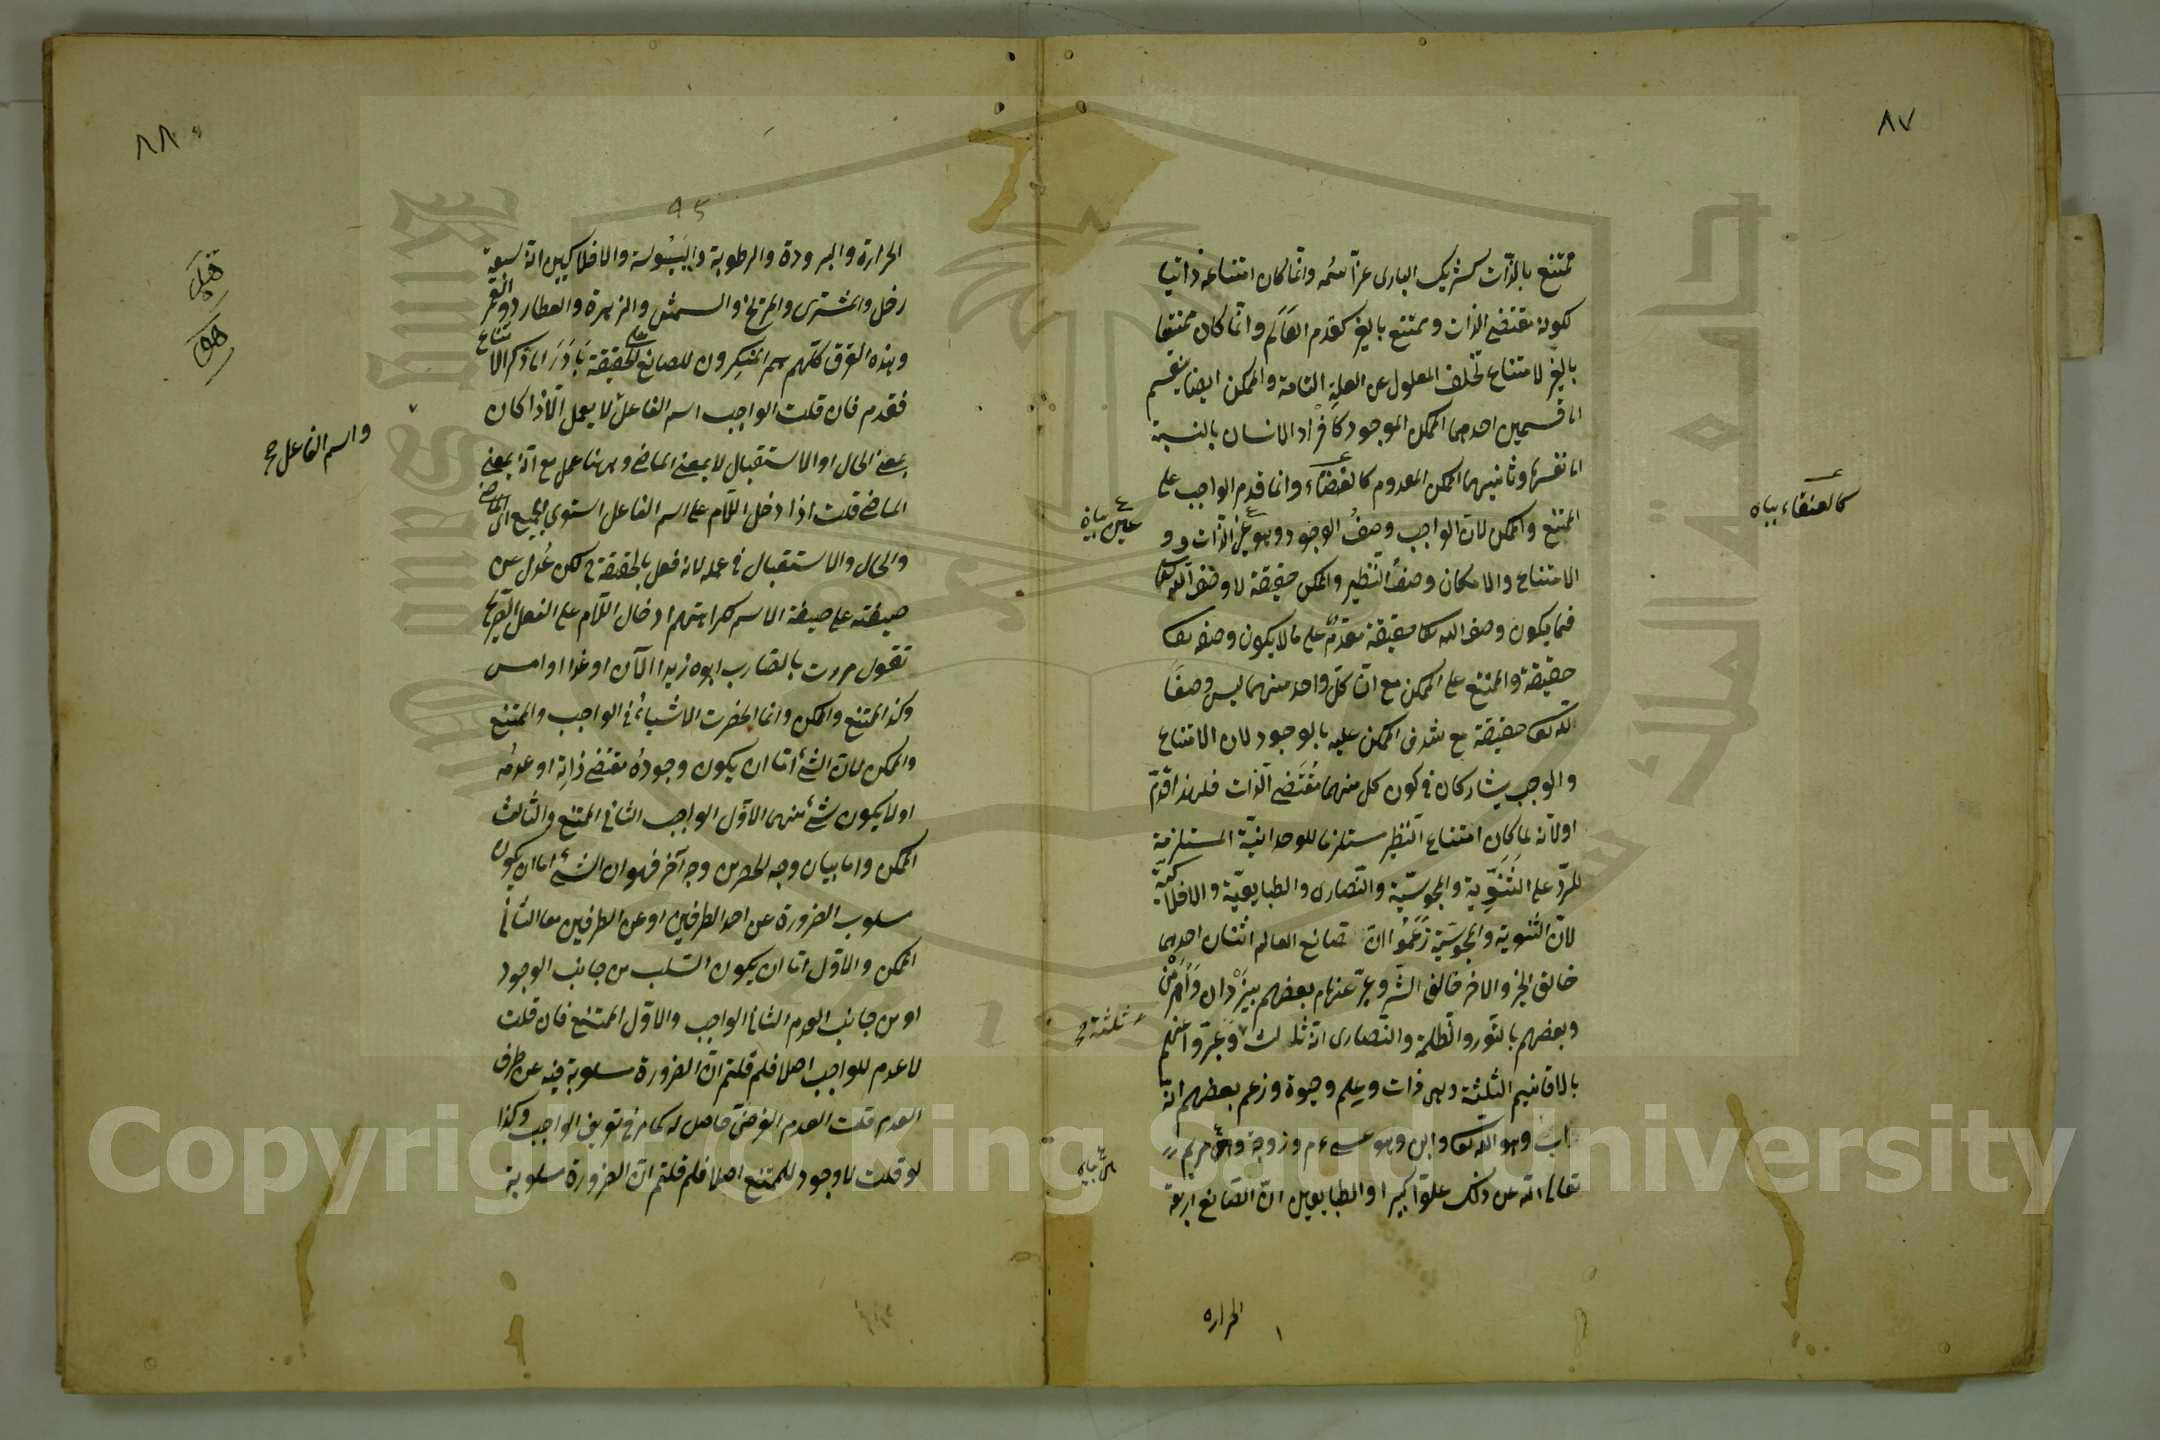 ٨٧
ممتنع بالذات كشريك البارى عز اسمه وانما كان امتناعه ذاتيا
لكونه مقتضى الذات وممتنع بالغير كعدم العالم وانما كان ممتنعا
بالغير لامتناع تخلف المعلول عن العلة التامة والممكن ايضا ينقسم
الى قسمين احدهما الممكن الموجود كافراد الانسان بالنسبة
الى نفسها وثانيهما الممكن المعدوم كالعنقاء وانما قدم الواجب على
كالعنقاء بيان
الممتنع والممكن لان الواجب وصف الوجود وهو عين الذات و
عين بيان
الامتناع والامكان وصف النظير والممكن حقيقة لا وصف الله تعالى
فما يكون وصف الله تعالى حقيقة مقدم على ما لا يكون وصفه تعالى
حقيقة والممتنع على الممكن مع ان كل واحد منهما ليس وصفا
لله تعالى حقيقة مع شرف الممكن عليه بالوجود لان الامتناع
والوجوب يشاركان فى كون كل منهما مقتضى الذات فلهذا قدم
او لانه لما كان امتناع النظير مستلزما للوحدانية المستلزمة
للرد على الثنوية والمجوسية والنصارى والطبايعية والافلاكية
لان الثنوية والمجوسية زعموا ان صانع العالم اثنان احدهما
خالق الخير والاخر خالق الشر وعبر عنهما بعضهم بيزدان واهرمن
وبعضهم بالنور والظلمة والنصارى انه ثلاث وعبروا عنهم
ثلثة
بالاقانيم الثلثة وهى ذات وعلم وحيوة وزعم بعضهم انه
اب وهو الله تعالى وابن وهو عيسى ع م وزوجة وهى مريم
تعالى الله عن ذلك علوا كبيرا والطبايعيين ان الصانع اربعة
الحراره
٨٨
٩٥
الحرارة والبرودة والرطوبة واليبوسة والافلاكيين انه سبعة
زحل والمشترى والمريخ والشمس والزهرة والعطارد والقمر
وهذه الفرق كلهم هم المنكرون للصانع على الحقيقة بادر الى ذكر الامتناع
فقدم فان قلت الواجب اسم الفاعل لا يعمل الا اذا كان
واسم الفاعل
بمعنى الحال او الاستقبال لا بمعنى الماضى وههنا عمل مع انه بمعنى
الماضى قلت اذا دخل اللام على اسم الفاعل استوى الجميع اى الماضى
والحال والاستقبال فى عمله لانه فعل بالحقيقة لكن عدل عن
صيغته على صيغة الاسم لكراهتهم ادخال اللام على الفعل الصريح
تقول مررت بالضارب ابوه زيدا الآن او غدا او امس
وكذا الممتنع والممكن وانما انحصرت الاشياء فى الواجب والممتنع
والممكن لان الشئ اما ان يكون وجوده مقتضى ذاته او عدمه
او لا يكون شئ منهما الاول الواجب الثانى الممتنع والثالث
الممكن واما بيان وجه الحصر من وجه آخر فهو ان الشئ اما ان يكون
مسلوب الضرورة عن احد الطرفين او عن الطرفين معا الثانى
الممكن والاول اما ان يكون السلب من جانب الوجود
او من جانب العدم الثانى الواجب والاول الممتنع فان قلت
لا عدم للواجب اصلا فلم قلتم ان الضرورة مسلوبة فيه عن طرف
العدم قلت العدم الفرضى حاصل له كما مر فى تعريف الواجب وكذا
لو قلت لا وجود للممتنع اصلا فلم قلتم ان الضرورة مسلوبة
Copyright © King Saud University